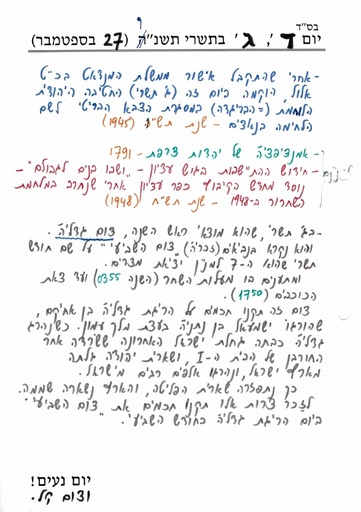 בס"ד
יום ד', ג' בתשרי תשנ" (27 בספטמבר)
-אחרי שהתקבל אישור ממשלת המנדאט בכ"ט
אלול, הוקמה ביום זה (ג' תשרי) החטיבה היהודית
הלוחמת (=הבריגדה) במסגרת הצבא הבריטי לשם
הלחימה בנאצים - שנת (1945)
-אמנציפציה של יהדות צרפת - 1791
-חידוש ההתישבות בגוש עציון - "ושבו בנים לגבולם" -
נוסד מחדש הקיבוץ כפר עציון אחרי שנחרב במלחמת
השחרור ב-1948 - שנת תש"ח (1948)
-בג' תשרי, שהוא מוצאי ראש השנה, צום גדליה.
והוא נקרא בנביאים (זכריה) "צום השביעי" על שם חודש
תשרי שהוא ה-7 למנין יציאת מצרים.
ומתענים בו מעלות השחר (השנה 0355) ועד צאת
הכוכבים (1750).
צום זה תקנו חכמים על הריגת גדליה בן אחיקם,
שהורגו ישמעאל בן נתניה בעצת מלך עמון. כשנהרג
גדליה כבתה גחלת ישראל האחרונה ששרדה אחר
החורבן של הבית ה-I, ושארית יהודה גלתה
מארץ ישראל, ונהרגו אלפים רבים מישראל.
כך נתפזרה שארית הפליטה, והארץ נשארה שוממה.
לזכר צרות אלו תקנו חכמים את "צום השביעי"
ביום הריגת גדליה בחודש השביעי.
יום נעים!
וצום קל.